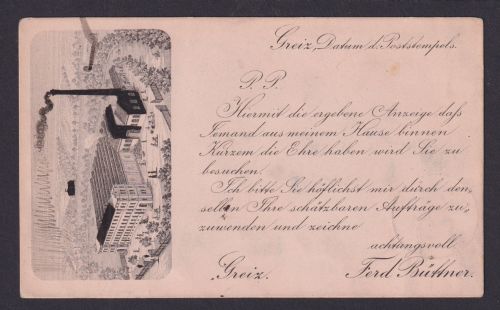 Greiz, Datum d. Poststempels.
P. P.
Hiermit die ergebene Anzeige daſs
Jemand aus meinem Hause binnen
Kurzem die Ehre haben wird Sie zu
besuchen.
Ich bitte Sie höflichst mir durch den-
selben Ihre schätzbaren Aufträge zu-
zuwenden und zeichne
achtungsvoll
Greiz. Ferd Büttner.